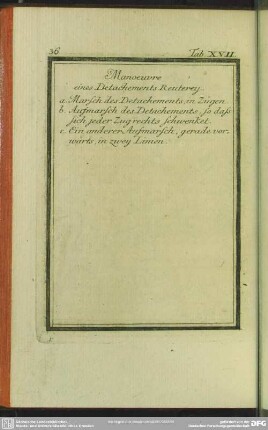 36 Tab. XVII
Manoeuvre
eines Detachements Reuterey.
a. Marsch des Detachements, in Zügen.
b. Aufmarsch des Detachements, so daß
sich jeder Zug rechts schwenket.
c. Ein anderer Aufmarsch, gerade vor-
wärts, in zwey Linien.
DFG